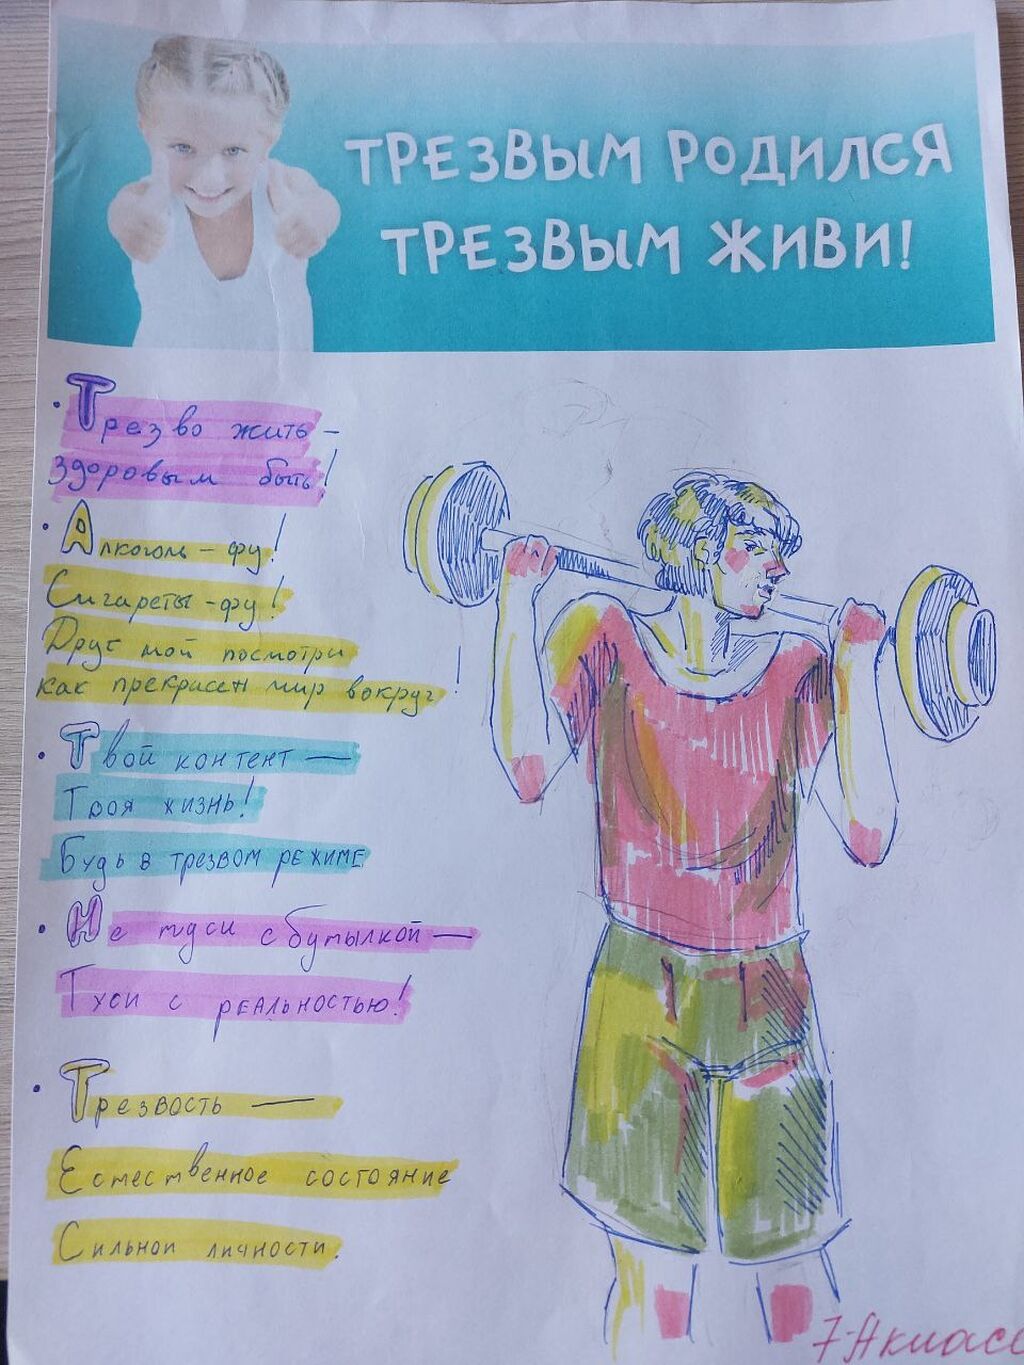 ТРЕЗВЫМ РОДИЛСЯ
ТРЕЗВЫМ ЖИВИ!
• Трезво жить –
здоровым быть!
• Алкоголь – фу!
Сигареты – фу!
Друг мой посмотри
как прекрасен мир вокруг!
• Твой контент —
Твоя жизнь!
Будь в трезвом режиме
• Не туси с бутылкой —
Туси с реальностью!
• Трезвость —
Естественное состояние
Сильной личности.
7-А класс